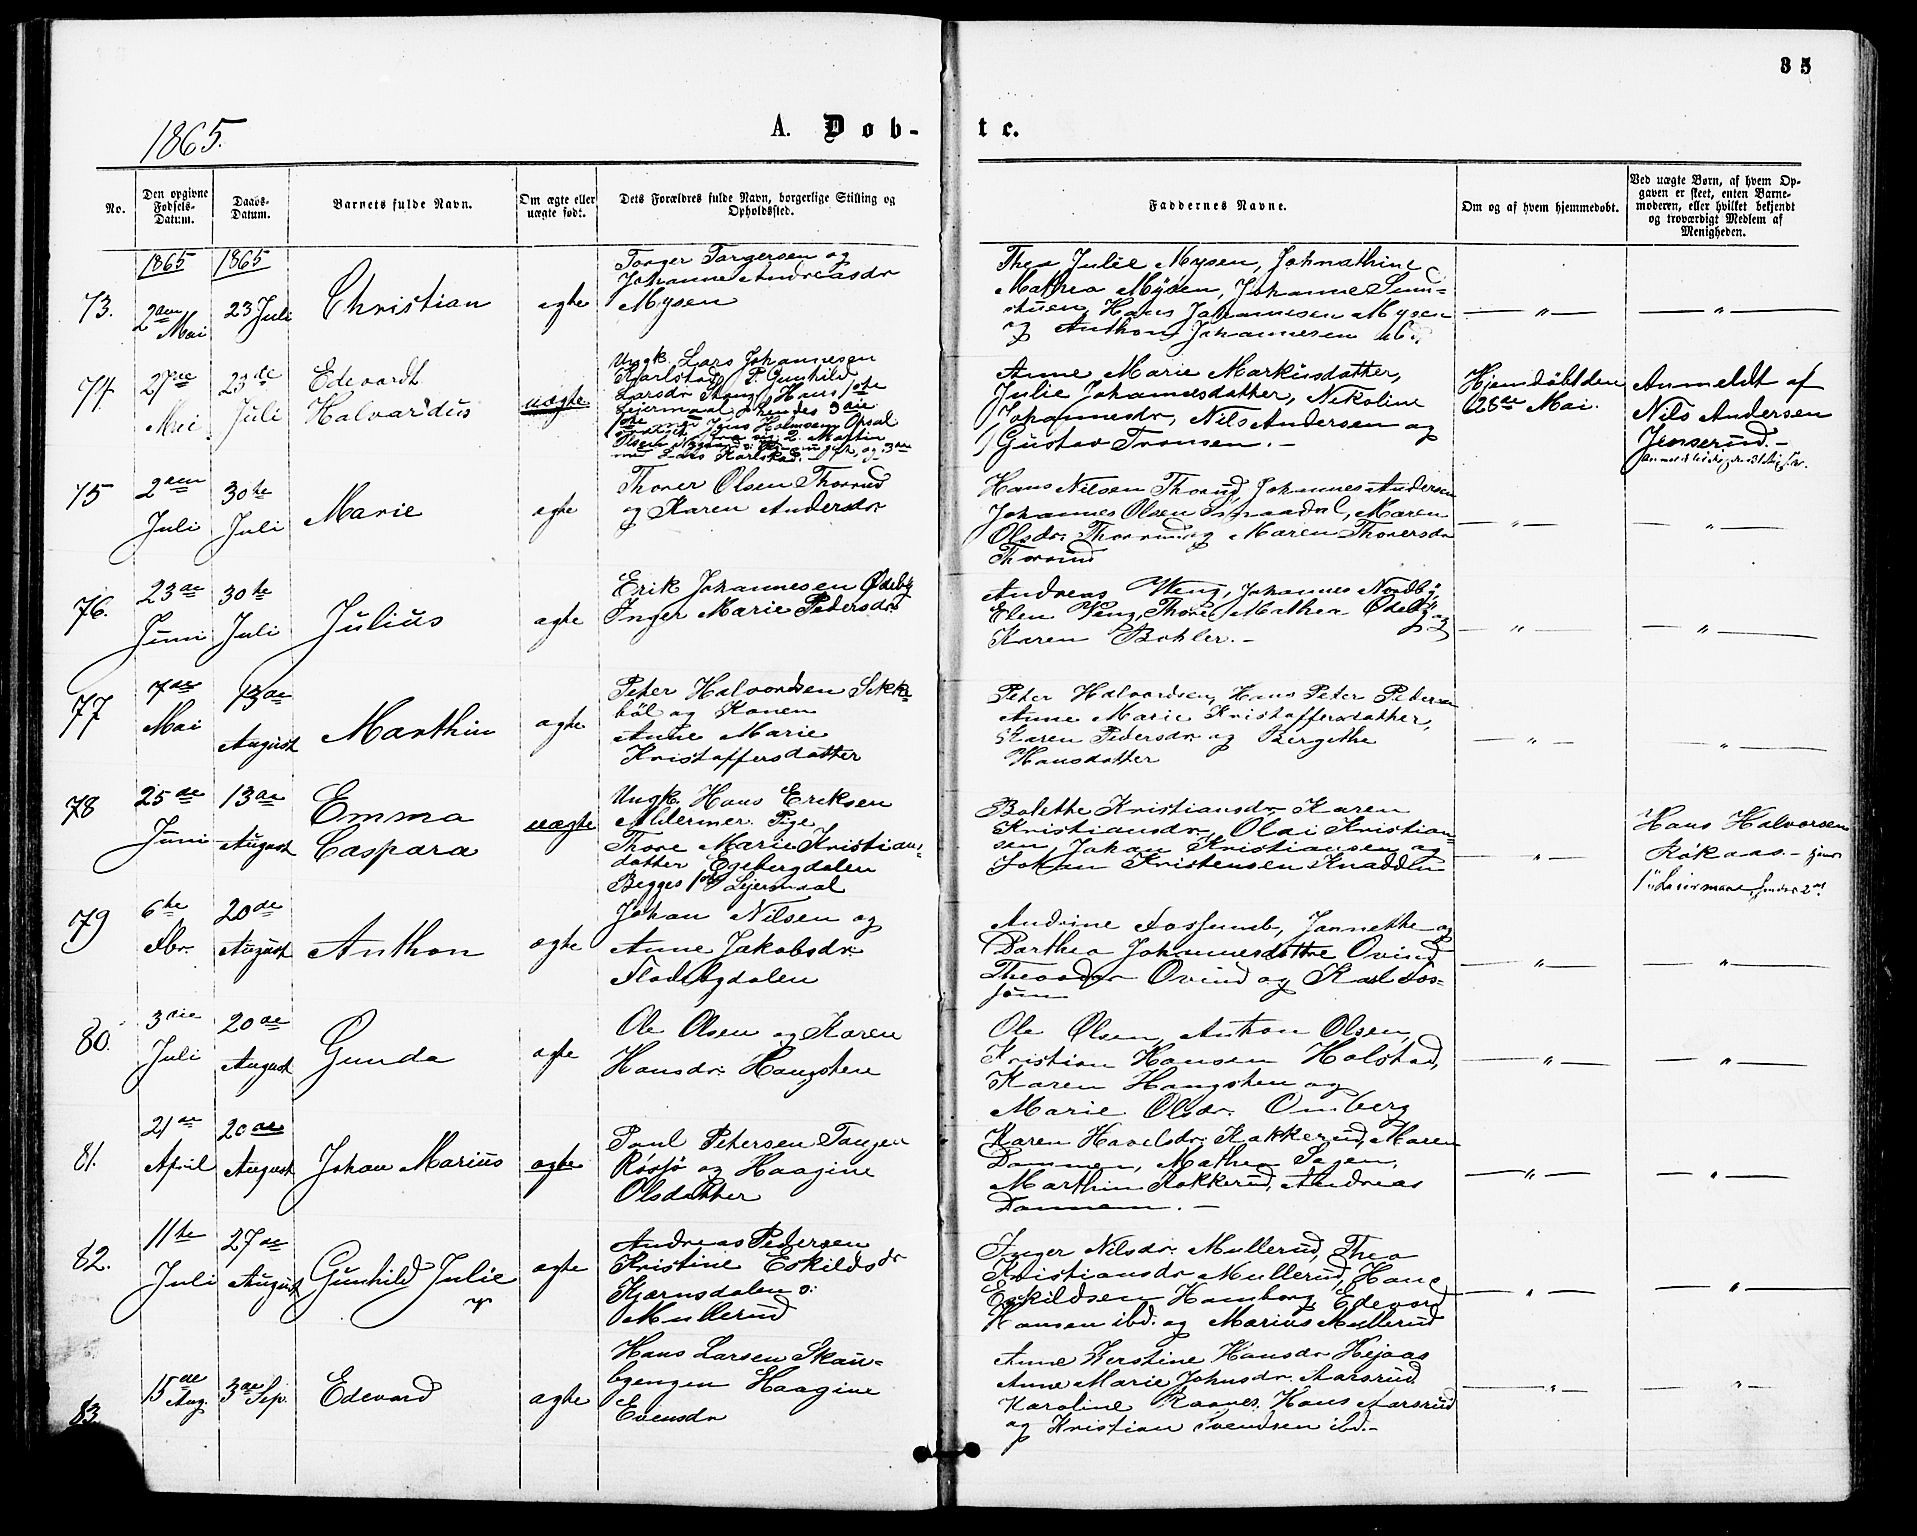 35
1865.
A. Døb-
te.
No.
Den opgivne Fødsels-Datum.
Daabs-Datum.
Barnets fulde Navn.
Om ægte eller uægte født.
Dets Forældres fulde Navn, borgerlige Stilling og Opholdssted.
Faddernes Navne.
Om og af hvem hjemmedøbt.
Ved uægte Børn, af hvem Op-
gaven er skeet, enten Barne-
moderen, eller hvilket bekjendt
og troværdigt Medlem af
Menigheden.
1865
1865
73.
2den Mai
23 Juli
Christian
ægte
Torger Torgersen og
Johanne Andreasdr
Mysen
Thea Julie Mysen, Johnathine
Mathea Mysen, Johanne
Hans Johannesen Mysen
og Anthon Johannesen ibd.
74.
27de Mai
23de Juli
Edevardt
Halvardus
uægte
Ungk. Lars Johannesen
Karlstad, P. Gunhild
Larsdr
Lejermaal, Hendes 3die
Lars Karlstad.
Anne Marie Markusdatter,
Julie Johannesdatter, Nikoline
Johannesdr, Nils Andersen og
Gustav Tronsen.
Hjemdøbt den
28de Mai.
Anmeldt af
Nils Andersen
Jenserud.
75
2den Juli
30te Juli
Marie
ægte
Thorer Olsen Thorrud
og Karen Andersdr
Hans Nilsen Thorrud, Johannes Andersen
Johannes Olsen Smaadal, Maren
Olsdr. Thorrud og Maren Thorersdr
Thorrud
76.
23de Juni
30te Juli
Julius
ægte
Erik Johannesen Ødeby
Inger Marie Pedersdr
Andreas Weng, Johannes Nordby,
Elen Weng, Thore Mathea Ødeby og
Karen Bøhler.
77
7de Mai
13de August
Marthin
ægte
Peter Halvordsen Sekke-
bøl og Konen
Anne Marie
Kristoffersdatter
Peter Halvordsen, Hans Peter Pedersen
Anne Marie Kristoffersdatter,
Karen Pedersdr og Bergithe
Hansdatter
78
25de Juni
13de August
Emma
Caspara
uægte
Ungk. Hans Eriksen
Mildermer. Pige
Thore Marie Kristians-
datter Egebergdalen
Begges 1ste Lejermaal
Bolethe Kristiansdr. Karen
Kristiansdr, Olai Kristian-
sen, Johan Kristiansen og
Johan Kristensen Knadden
Hans Halvorsen
Røkaas
79
6te Fbr.
20de August
Anthon
ægte
Johan Nilsen og
Anne Jakobsdr.
Flodebgdalen
Andrine Fossumb, Jannethe og
Dorthea Johannesdattre Ovind
Theodor Ovind og Karl Fos-
sum
80.
3die Juli
20de August
Gunda
ægte
Ole Olsen og Karen
Hansdr. Haugsten
Ole Olsen, Anthon Olsen,
Kristian Hansen Holstad,
Karen Haugsten og
Marie Olsdr. Omberg
81.
21de April
20de August
Johan Marius
ægte
Paul Petersen Tangen
Røssjø og Haagine
Olsdatter
Karen Havelsdr. Kakkerud, Maren
Dammen, Mathea Sagen,
Marthin Kakkerud, Andreas
Dammen.
82.
11te Juli
27de August
Gunhild Julie
ægte
Andreas Pedersen
Kristine Eskildsdr
Kjærnsdalen
Mullerud
Inger Nilsdr. Mullerud, Thea
Kristiansdr Mullerud, Hans
Eskildsen Hamborg, Edevard
Hansen ibd. og Marius Mullerud
83.
15de Aug.
3de Sep.
Edevard
ægte
Hans Larsen Skau-
bgengen Haagine
Evensdr
Anne Kerstine Hansdr Hejaas
Anne Marie Johnsdr. Aarsrud
Karoline Raanes, Hans Aarsrud
og Kristian Svendsen ibd.